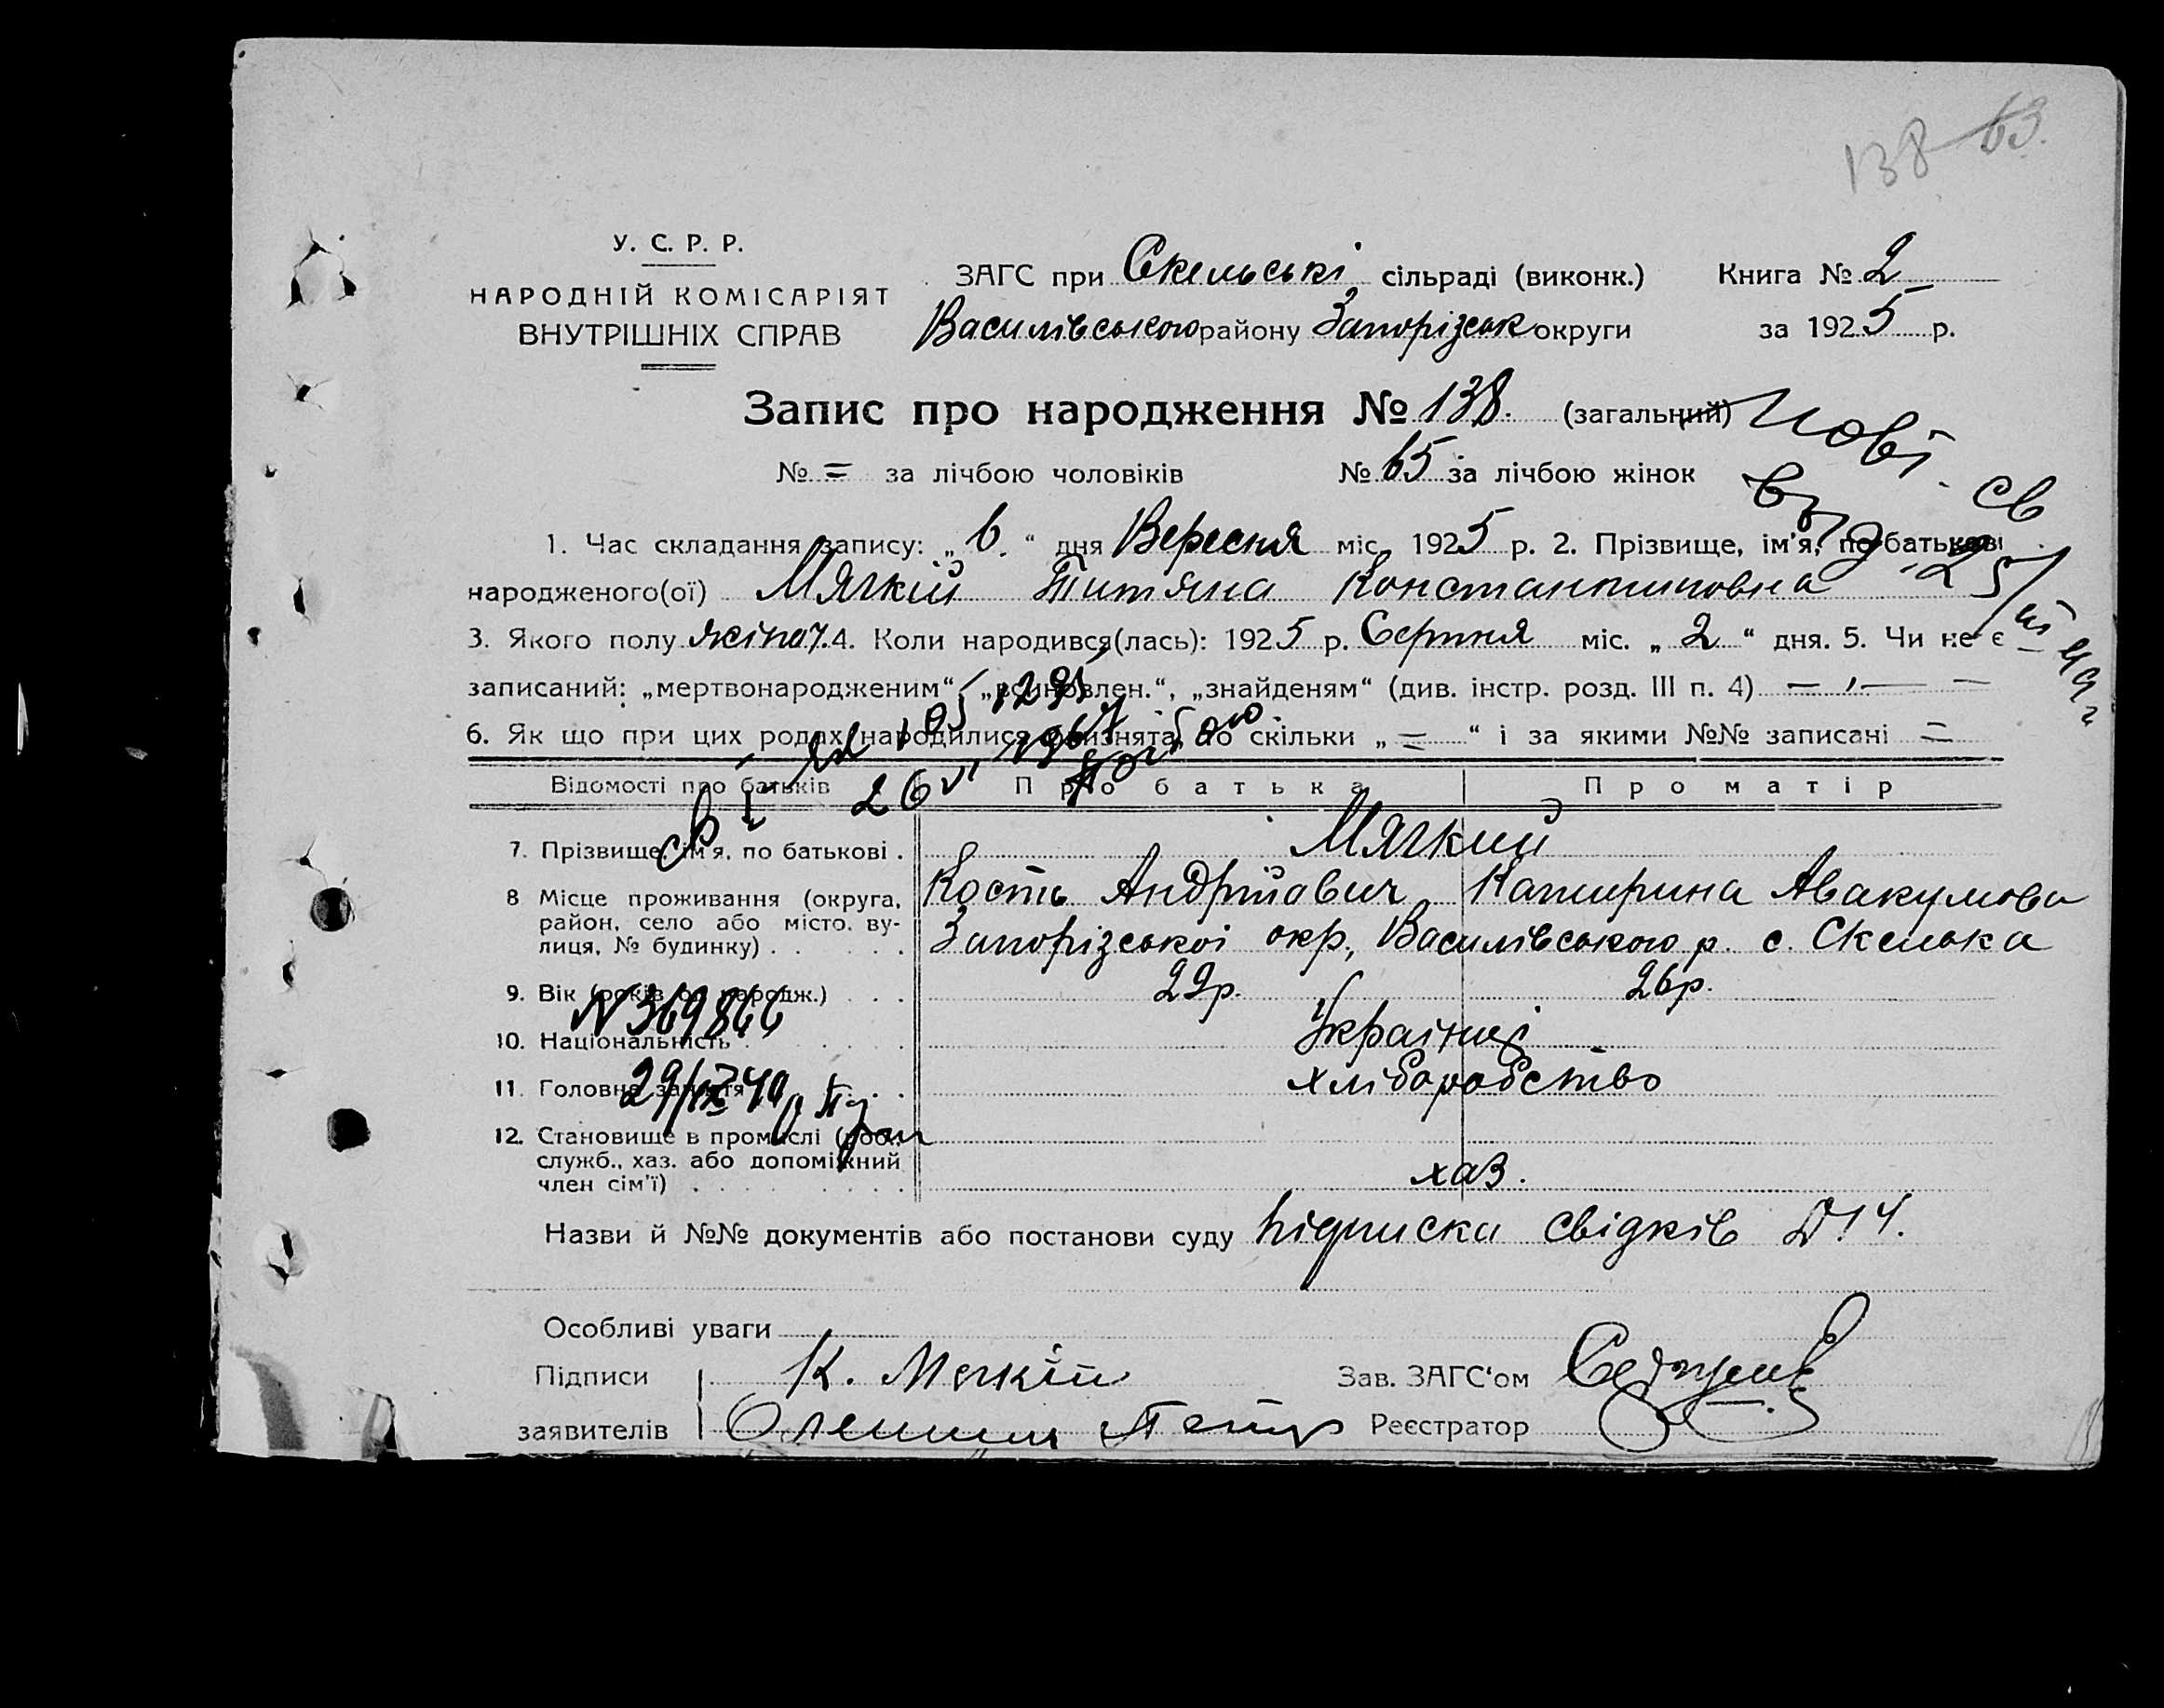 138 63.
У. С. Р. Р.
НАРОДНІЙ КОМІСАРІЯТ
ВНУТРІШНІХ СПРАВ
ЗАГС при Скельські сільраді (виконк.) Книга № 2
Василівського району Запорізськ округи за 1925 р.
Запис про народження № 138. (загальний)
№ = за лічбою чоловіків № 65 за лічбою жінок
Нові св
1. Час складання запису: „ 6. “ дня Вересня міс. 1925 р. 2. Прізвище, ім'я, по батькові
народженого(ої) Мягкий Титяна Константиновна
3. Якого полу жіноч. 4. Коли народився(лась): 1925 р. Серпня міс. „ 2 “ дня. 5. Чи не є
записаний: „мертвонародженим“, „всиновлен.“, „знайденям“ (див. інстр. розд. III п. 4) — — —
6. Як що при цих родах народилися близнята, то скільки „ = “ і за якими №№ записані =
26 VI 1967
Відомості про батьків Про батька Про матір
7. Прізвище, ім'я, по батькові . Мягкий
Кость Андрійович Катирина Авакумова
8 Місце проживання (округа, район, село або місто, вулиця, № будинку) . . Запорізськоі окр, Василівського р. с. Скелька
9. Вік (років од народж.) . . . 29р. 26р.
N 369866
10. Національність . Украінці
11. Головне заняття . . хліборобство
29/IX 49
12. Становище в промислі (роб.,
служб., хаз. або допоміжний
член сім'ї) . хаз.
Назви й №№ документів або постанови суду підписка свідків Д. 14.
Особливі уваги
Підписи К. Мягкій Зав. ЗАГС'ом
заявителів Реєстратор